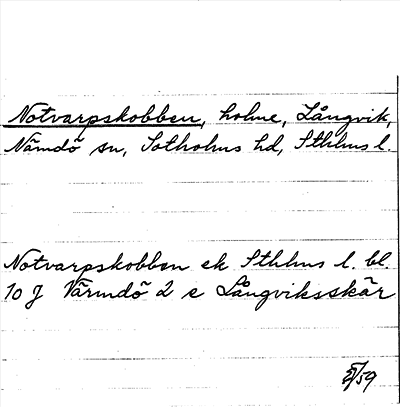 Notvarpskobben, holme, Långvik,
Nämdö sn, Sotholms hd, Sthlms l.
Notvarpskobben ek Sthlms l. bl.
10 J Värmdö 2 e Långviksskär
/59